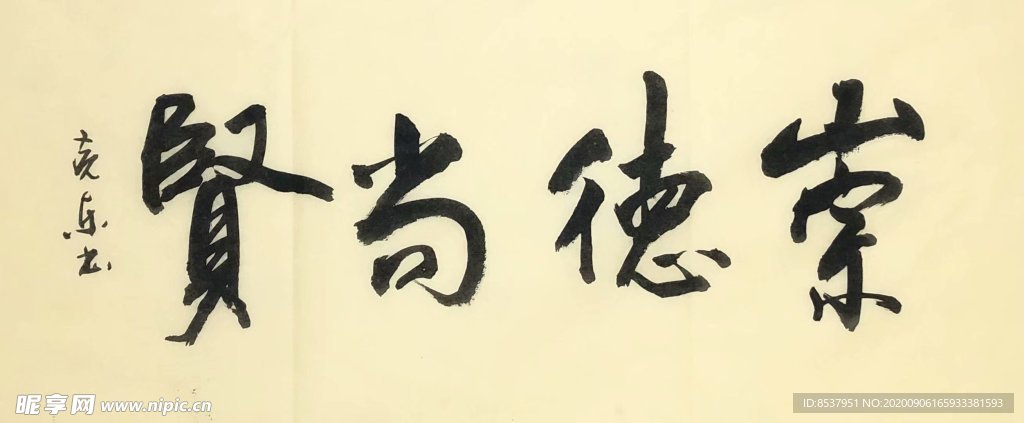 崇德尚賢
克东书
昵享网 www.nipic.cn
ID:8537951 NO:20200906165933381593